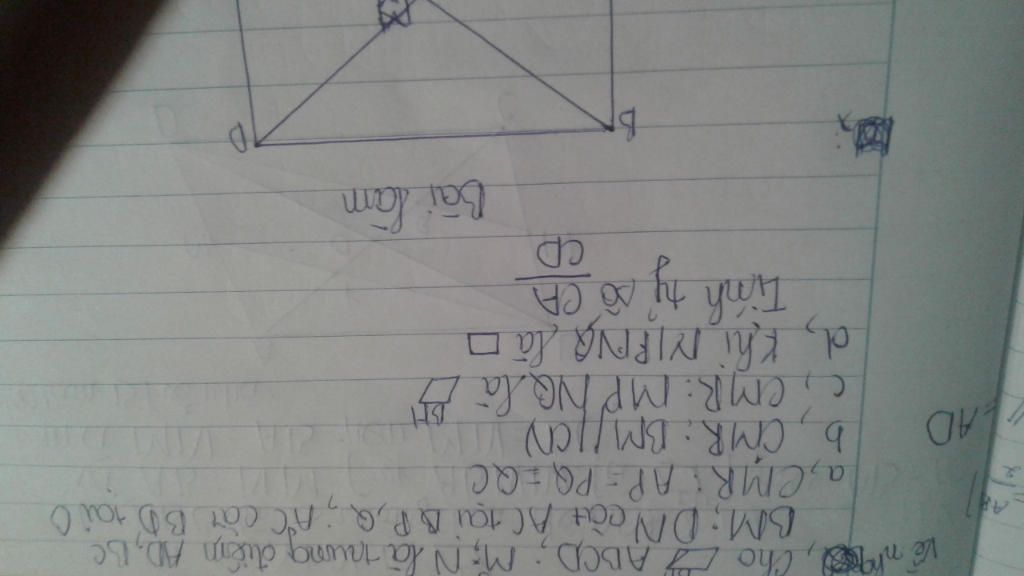 Cho ▱ ABCD; M; N là trung điểm AD, BC
BM; DN cắt AC tại P, Q; AC cắt BD tại O
a, CMR: AP = PQ = QC
b, CMR: BM // CN
c, CMR: MPNQ là ▱ BH
d, Khi MPNQ là □
Tính tỷ số CA
CD
Bài làm
D
B
= AD